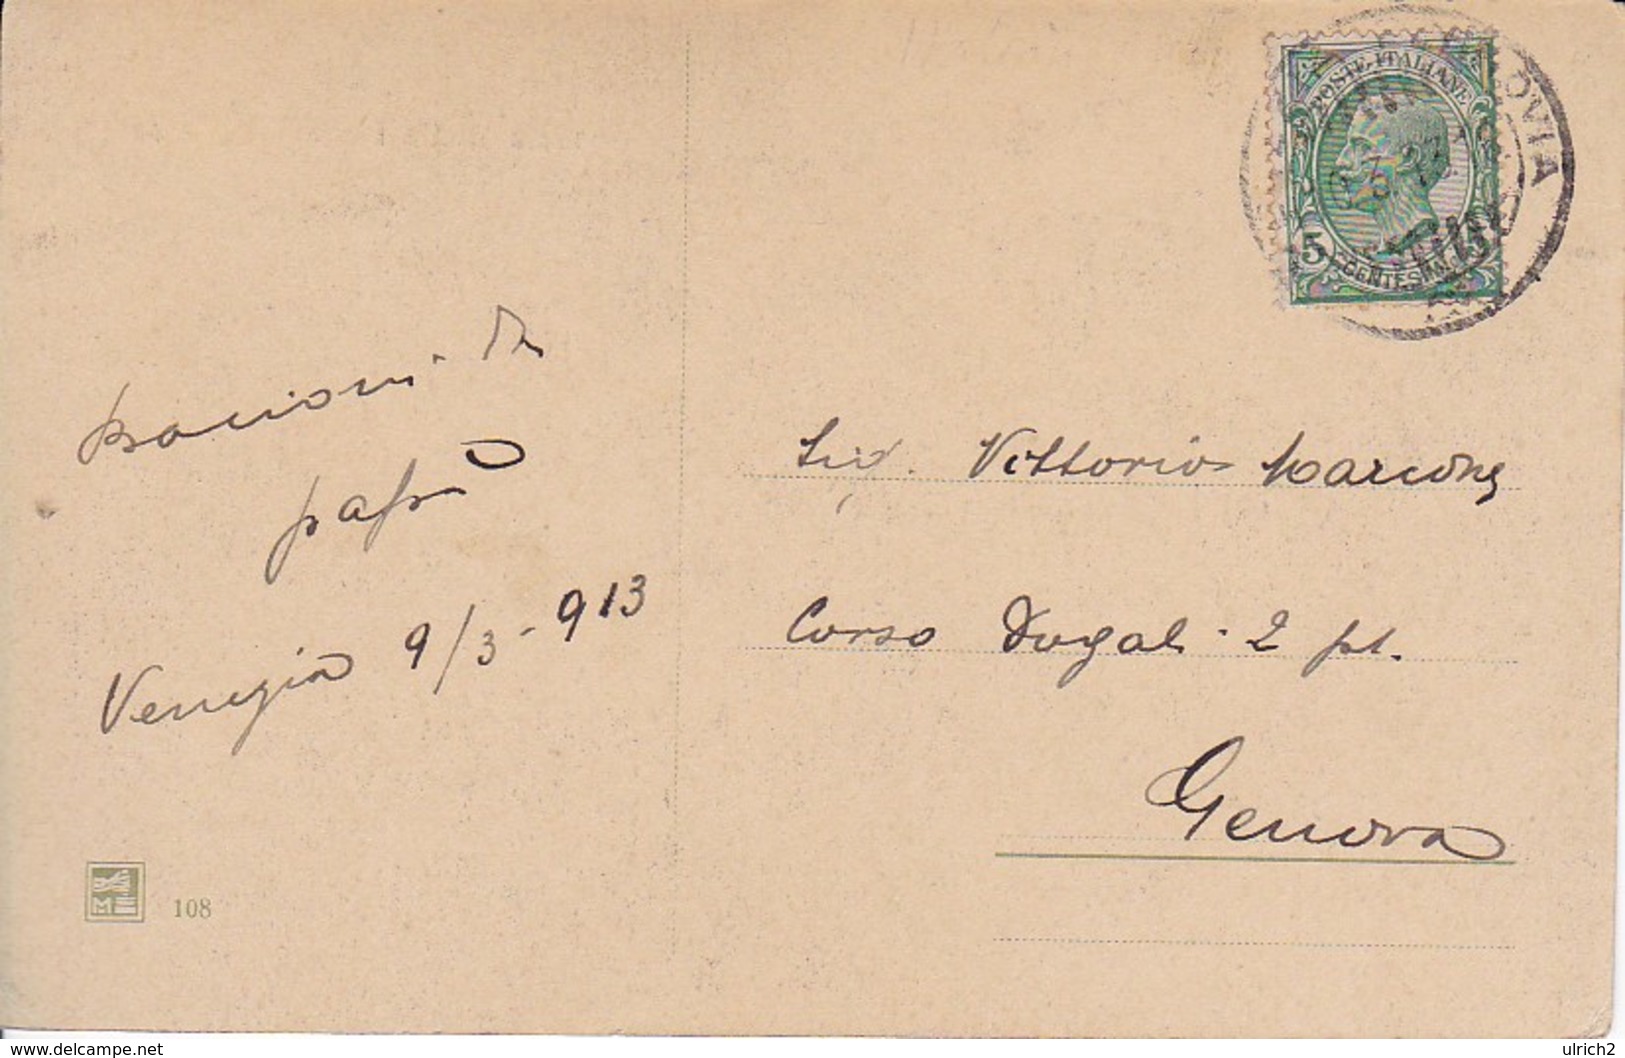 POSTE ITALIANE
5 CENTESIMI 5
OVIA
Bacioni da
papà
Venezia 9/3-913
Sig. Vittorio Marcone
Corso Dogali - 2 pt.
Genova
M
108
© www.delcampe.net
ulrich2